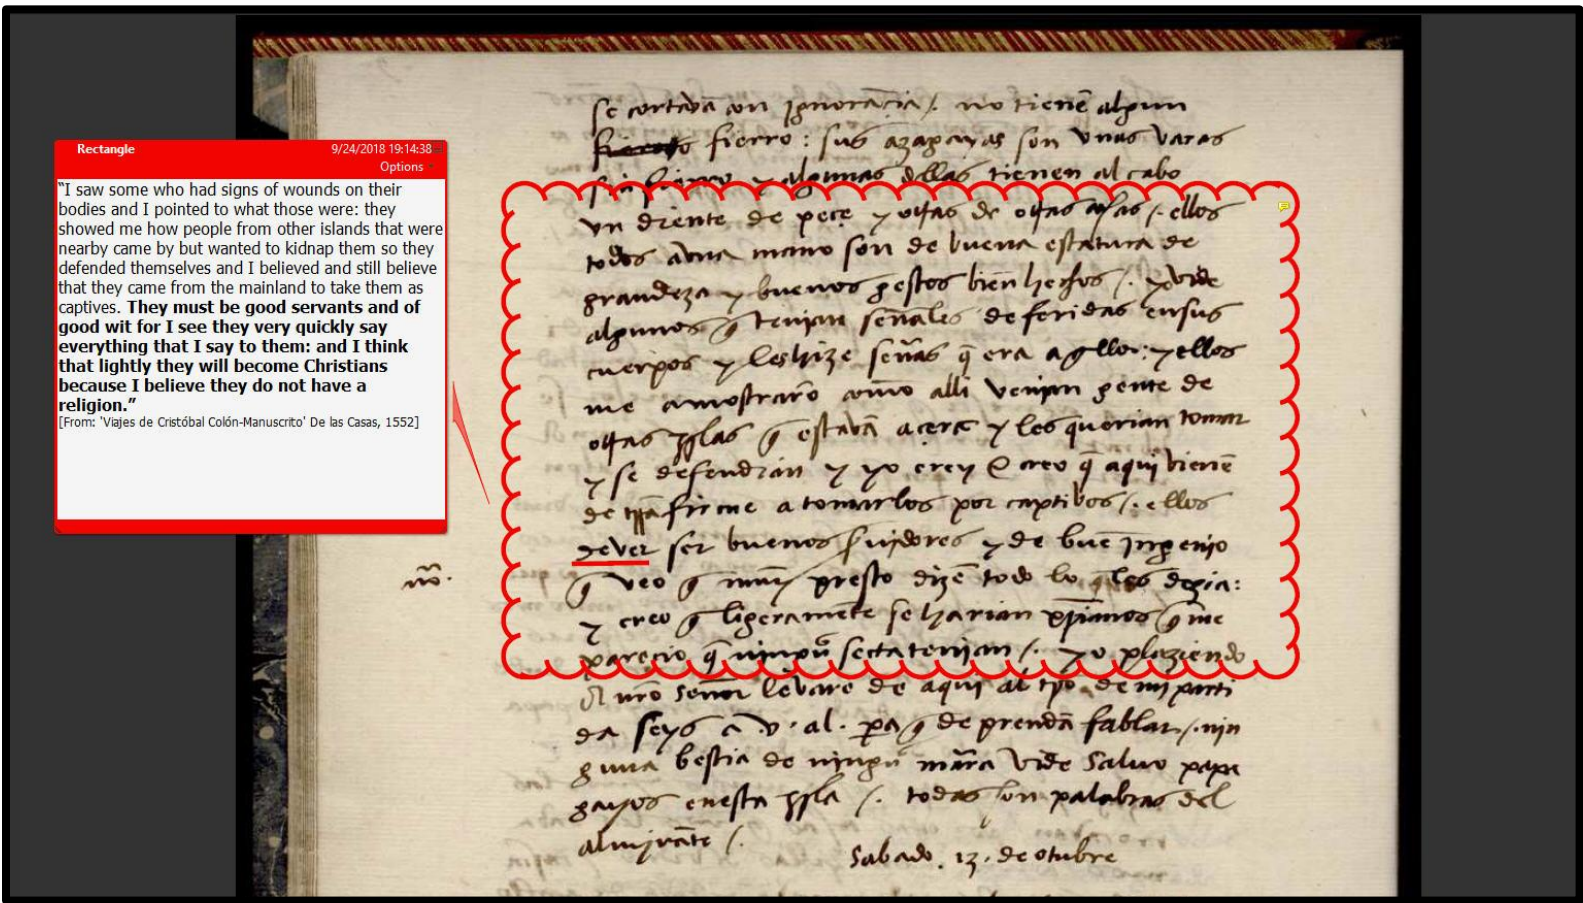 Rectangle 9/24/2018 19:14:38
Options
"I saw some who had signs of wounds on their
bodies and I pointed to what those were: they
showed me how people from other islands that were
nearby came by but wanted to kidnap them so they
defended themselves and I believed and still believe
that they came from the mainland to take them as
captives. They must be good servants and of
good wit for I see they very quickly say
everything that I say to them: and I think
that lightly they will become Christians
because I believe they do not have a
religion."
[From: 'Viajes de Cristóbal Colón-Manuscrito' De las Casas, 1552]
se cortavā con ygnorāçia /. no tienē algun
fierro : sus azagayas son vnas varas
sin fierro y algunas dellas tienen al cabo
vn diente de peçe y otras de otras cosas /. ellos
todos a vna mano son de buena estatura de
grandeza y buenos gestos bien hechos /. yo vide
algunos q̄ tenian señales de feridas en sus
cuerpos y les hize señas q̄ era aqllo : y ellos
me amostrarō como alli venjan gente de
otras yslas q̄ estavā açerca y los querian tomar
y se defendian y yo crey e creo q̄ aqui vienē
de trrā firme a tomarlos por captibos /. ellos
dever ser buenos s̄uidores y de buē yngenio
q̄ veo q̄ muy presto dizē todo lo q̄ les dezia :
nō.
y creo q̄ ligeramēte se harian xp̄ianos q̄ me
pareçio q̄ ningū secta tenjan /. yo plaziendo
a nr̄o señor levare de aqui al tp̄o de mi parti
da seys a .v. al. pa q̄ deprendā fablar /. nin
guna bestia de ningū man̄ra vide saluo papa
gayos en esta ysla /. todas son palabras del
almjrāte /.
Sabado . 13 . de otubre